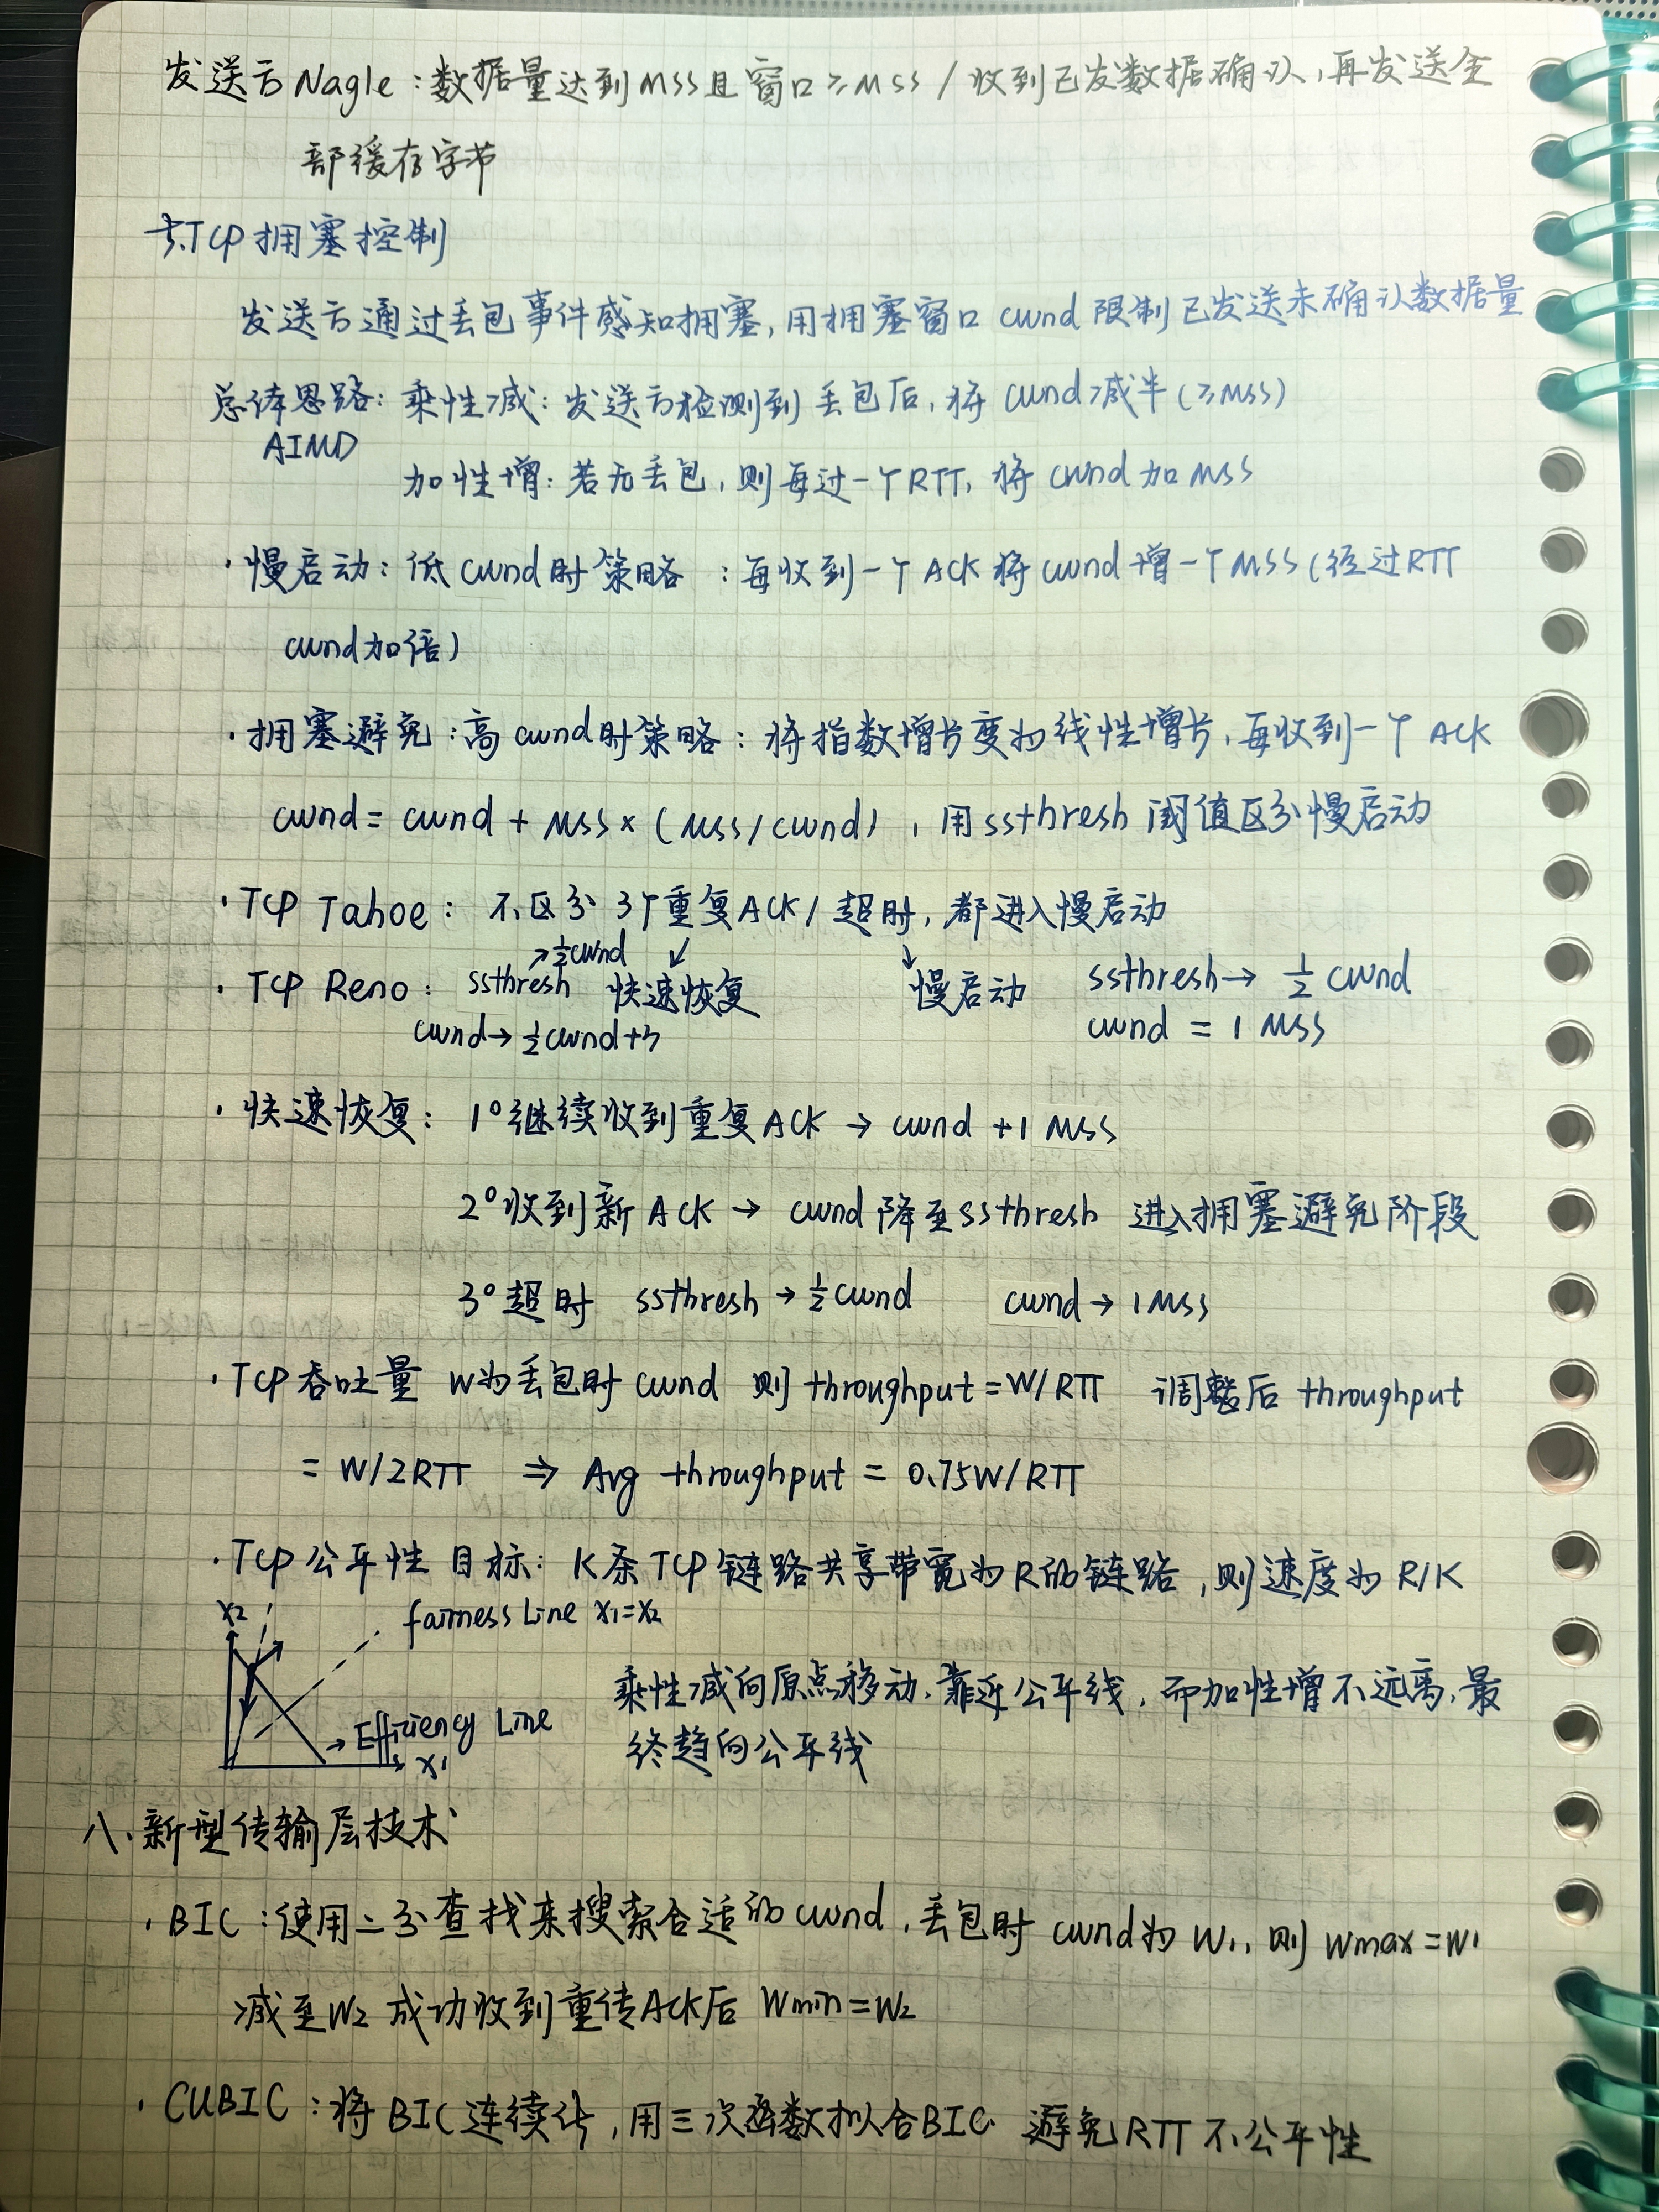 发送方 Nagle：数据量达到MSS且窗口≥MSS / 收到已发数据确认，再发送全
部缓存字节
七.TCP拥塞控制
发送方通过丢包事件感知拥塞，用拥塞窗口 cwnd 限制已发送未确认数据量
总体思路：乘性减：发送方检测到丢包后，将 cwnd减半（≥MSS）
AIMD
加性增：若无丢包，则每过一个RTT，将 cwnd加MSS
·慢启动：低cwnd时策略：每收到一个ACK将cwnd增一个MSS（经过RTT
cwnd加倍）
·拥塞避免：高cwnd时策略：将指数增长变为线性增长，每收到一个 ACK
cwnd = cwnd + MSS × (MSS/cwnd)，用ssthresh 阈值区分慢启动
·TCP Tahoe：不区分 3个重复ACK / 超时，都进入慢启动
→½cwnd ↙ ↓
·TCP Reno：ssthresh 快速恢复 慢启动 ssthresh → ½ cwnd
cwnd→½cwnd+3 cwnd = 1 MSS
·快速恢复：1°继续收到重复ACK → cwnd +1 MSS
2°收到新ACK → cwnd降至ssthresh 进入拥塞避免阶段
3°超时 ssthresh→½cwnd cwnd→1MSS
·TCP吞吐量 W为丢包时cwnd 则throughput=W/RTT 调整后 throughput
= W/2RTT ⇒ Avg throughput = 0.75W/RTT
·TCP公平性 目标：K条TCP链路共享带宽为R的链路，则速度为R/K
x2 fairness Line x1=x2
乘性减向原点移动，靠近公平线，而加性增不远离，最
→Efficiency Line
终趋向公平线
x1
八、新型传输层技术
·BIC：使用二分查找来搜索合适的cwnd，丢包时 cwnd为 W1，则 Wmax=W1
减至W2 成功收到重传ACK后 Wmin=W2
·CUBIC：将BIC连续化，用三次函数拟合BIC 避免RTT不公平性